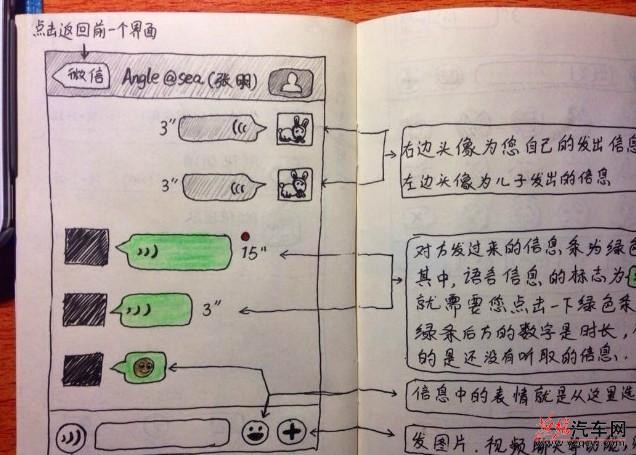 点击返回前一个界面
微信
Angle@sea(张明)
3"
右边头像为您自己的发出信息
左边头像为儿子发出的信息
3"
15"
3"
对方发过来的信息条为绿色
其中,语言信息的标志为
就需要您点击一下绿色条
绿条后方的数字是时长,
的是还没有听取的信息.
信息中的表情就是从这里选
发图片、视频聊天等功能,
汽车网